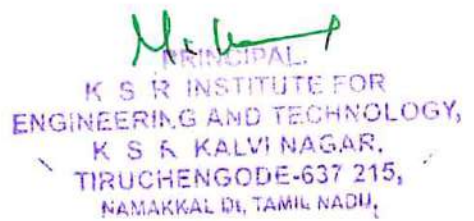 PRINCIPAL.
K S R INSTITUTE FOR
ENGINEERING AND TECHNOLOGY,
K S R KALVI NAGAR,
TIRUCHENGODE-637 215,
NAMAKKAL Dt, TAMIL NADU,